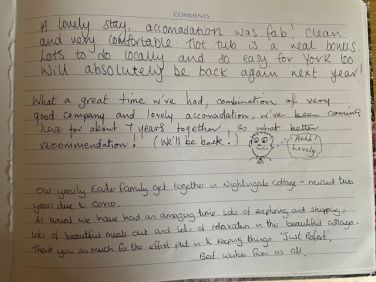 COMMENTS
A lovely stay, accomadation was fab! Clean
and very comfortable. Hot tub is a real bonus.
Lots to do locally and so easy for York too
Will absolutely be back again next year!
What a great time we've had, combination of very
good company and lovely accomadation, we've been coming
here for about 7 years together so what better
recommendation! (We'll be back!)
Ahh!
Lovely
Our yearly Easter family get together in Nightingale cottage - missed two
years due to Covid.
As usual we have had an amazing time. Lots of exploring and shopping,
lots of beautiful meals out and lots of relaxation in this beautiful cottage.
Thank you so much for the effort put in to keeping things 'Just Perfect'.
Best wishes from us all.